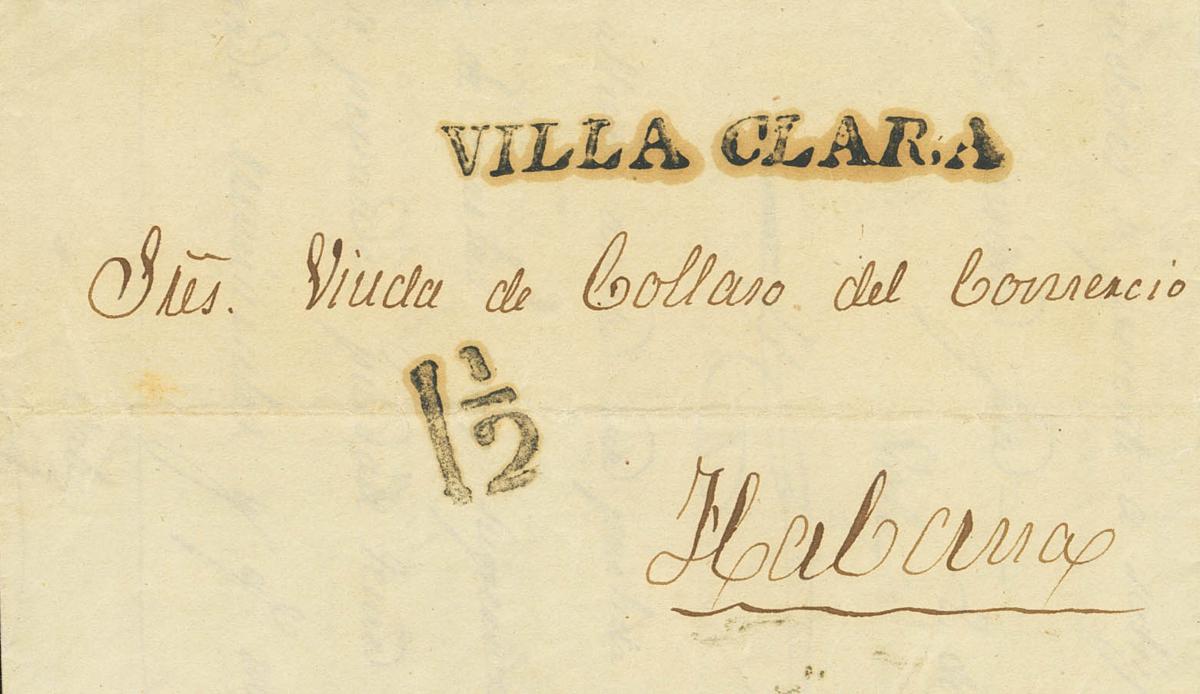 VILLA CLARA
Sres. Viuda de Collaso del Comercio
1 1/2
Habana